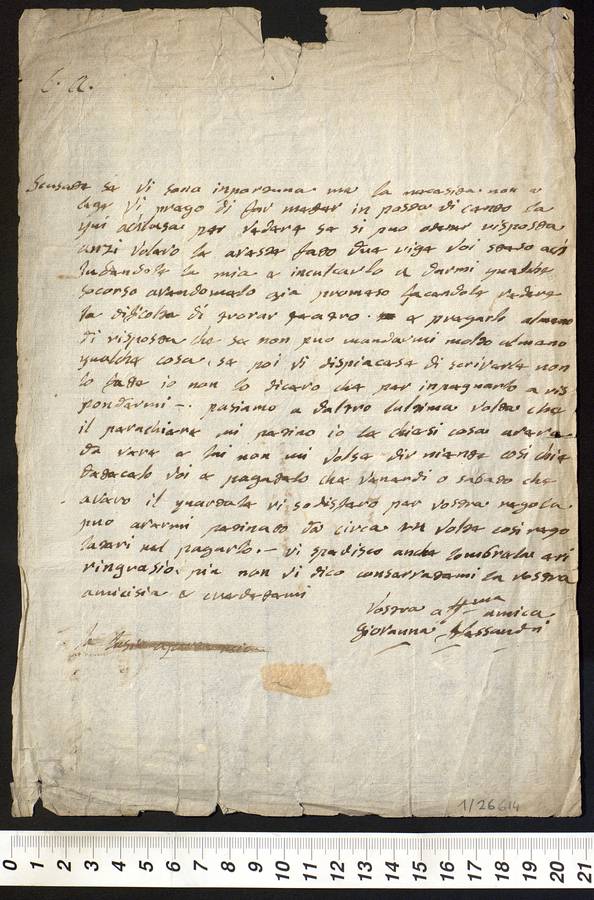 C. A.
Scusate se vi sono inportuna ma la necesita non a
lege vi prego di far meter in posta di canto la
qui aclusa per vedere se si puo avere risposta
anzi volevo la areste fato due rige voi steso
la mia e inculcarlo a darmi qualche
socorso avendomelo gia promeso facendole vedere
la dificolta di trovar e pregarlo almeno
di risposta che se non puo mandarmi molto almeno
qualche cosa, se poi vi dispiacese di scriverle non
lo fate io non lo dicevo che per inpegnarlo a ris
pondermi -. pasiamo a daltro lultima volta che
il peruchiere mi petino io le chiesi cosa
da vere e lui non mi volse dir niente cosi chie
detecelo voi e pagatelo che venerdi o sabato che
avero il quartale vi sodisfero per vostra regola
puo avermi petinato da circa volte cosi rego
latevi nel pagarlo. - vi spedisco anche lombrela e vi
ringrasio, piu non vi dico conservatemi la vostra
amicisia e credetemi
Vostra aff.ma amica
Giovanna Alessandri
1/26614
0 1 2 3 4 5 6 7 8 9 10 11 12 13 14 15 16 17 18 19 20 21